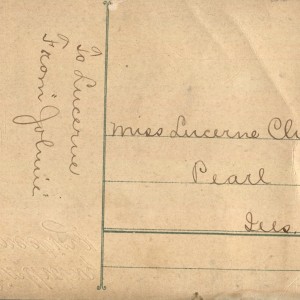 To Lucerne
From Johnie
Miss Lucerne Cli
Pearl
Ills.